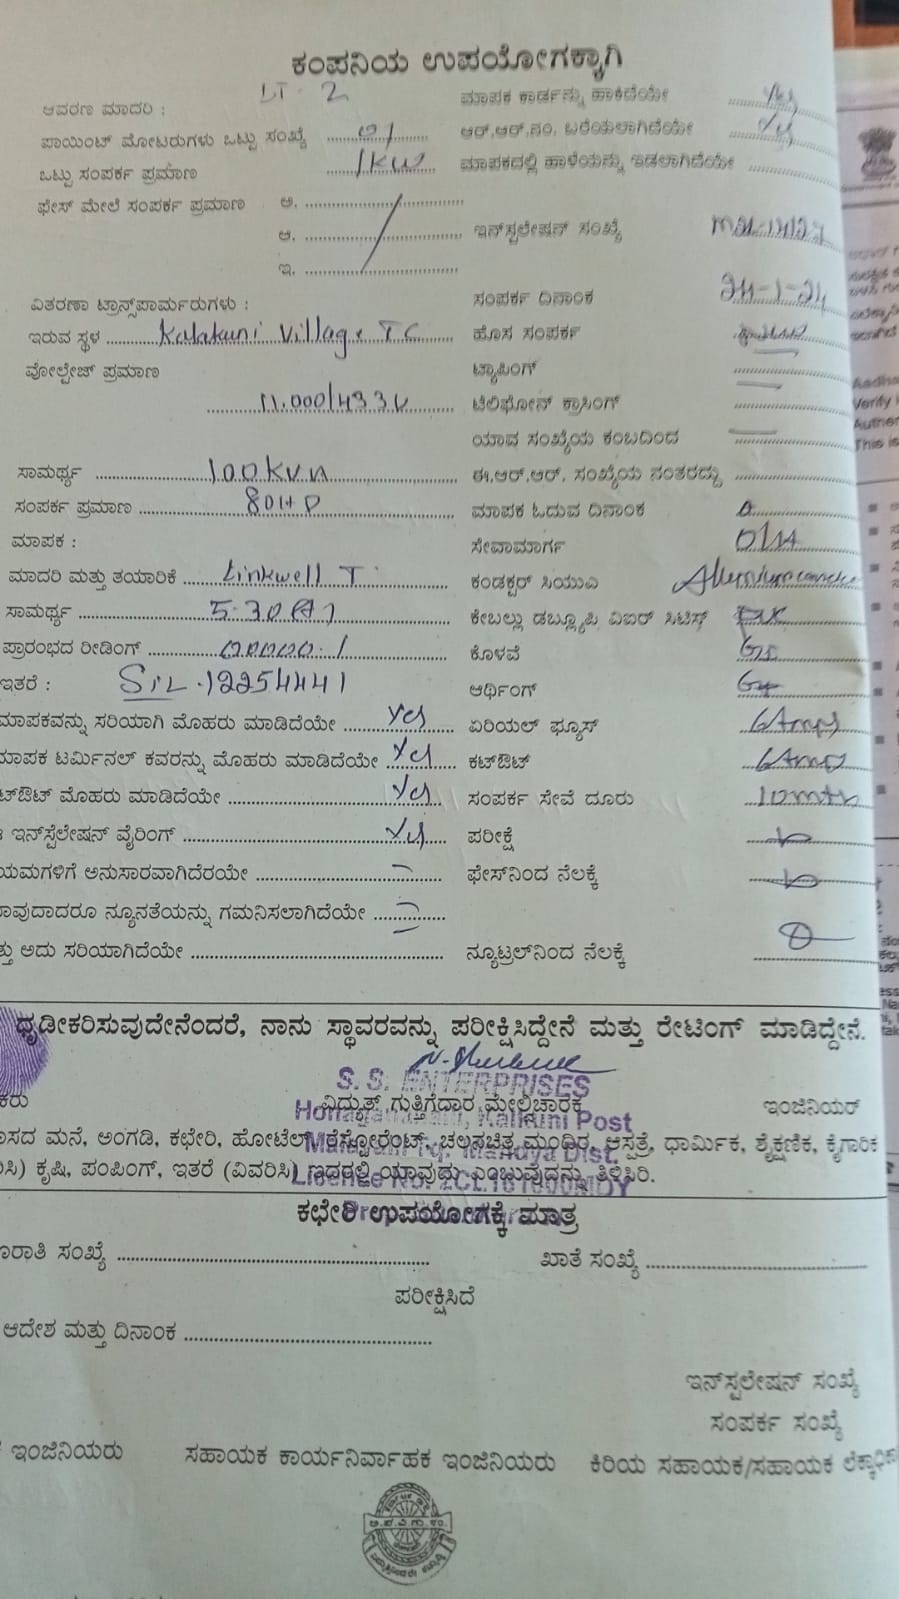 ಕಂಪನಿಯ ಉಪಯೋಗಕ್ಕಾಗಿ
ಆವರಣ ಮಾದರಿ : LT-2 ಮಾಪಕ ಕಾರ್ಡನ್ನು ಹಾಕಿದೆಯೇ
ಪಾಯಿಂಟ್ ಮೋಟರುಗಳು ಒಟ್ಟು ಸಂಖ್ಯೆ ಆರ್.ಆರ್.ನಂ. ಬರೆಯಲಾಗಿದೆಯೇ
ಒಟ್ಟು ಸಂಪರ್ಕ ಪ್ರಮಾಣ 1KW ಮಾಪಕದಲ್ಲಿ ಹಾಳೆಯನ್ನು ಇಡಲಾಗಿದೆಯೇ
ಫೇಸ್ ಮೇಲೆ ಸಂಪರ್ಕ ಪ್ರಮಾಣ ಅ.
ಆ. ಇನ್‌ಸ್ಟಲೇಷನ್ ಸಂಖ್ಯೆ
ಇ.
ವಿತರಣಾ ಟ್ರಾನ್ಸ್‌ಫಾರ್ಮರುಗಳು : ಸಂಪರ್ಕ ದಿನಾಂಕ 24-1-24
ಇರುವ ಸ್ಥಳ Kalakuni Village TC ಹೊಸ ಸಂಪರ್ಕ
ವೋಲ್ಟೇಜ್ ಪ್ರಮಾಣ ಟ್ಯಾಪಿಂಗ್
11.000/433V ಟೆಲಿಫೋನ್ ಕ್ರಾಸಿಂಗ್
ಯಾವ ಸಂಖ್ಯೆಯ ಕಂಬದಿಂದ
ಸಾಮರ್ಥ್ಯ 100KVA ಈ.ಆರ್.ಆರ್. ಸಂಖ್ಯೆಯ ನಂತರದ್ದು
ಸಂಪರ್ಕ ಪ್ರಮಾಣ 80HP ಮಾಪಕ ಓದುವ ದಿನಾಂಕ
ಮಾಪಕ : ಸೇವಾಮಾರ್ಗ O/H
ಮಾದರಿ ಮತ್ತು ತಯಾರಿಕೆ Linkwell T ಕಂಡಕ್ಟರ್ ಸಿಯುವಿ
ಸಾಮರ್ಥ್ಯ 5-30(A) ಕೇಬಲ್ಲು ಡಬ್ಲ್ಯೂಪಿ ವಿಐರ್ ಸಿಟಿಸ್
ಪ್ರಾರಂಭದ ರೀಡಿಂಗ್ 00000.1 ಕೊಳವೆ GI
ಇತರೆ : SIL.12254441 ಆರ್ಥಿಂಗ್ GI
ಮಾಪಕವನ್ನು ಸರಿಯಾಗಿ ಮೊಹರು ಮಾಡಿದೆಯೇ Yes ಏರಿಯಲ್ ಫ್ಯೂಸ್ 6Amps
ಮಾಪಕ ಟರ್ಮಿನಲ್ ಕವರನ್ನು ಮೊಹರು ಮಾಡಿದೆಯೇ Yes ಕಟ್‌ಔಟ್ 6Amps
ಟ್‌ಔಟ್ ಮೊಹರು ಮಾಡಿದೆಯೇ Yes ಸಂಪರ್ಕ ಸೇವೆ ದೂರು 10mtr
ಇನ್‌ಸ್ಪೆಲೇಷನ್ ವೈರಿಂಗ್ Yes ಪರೀಕ್ಷೆ
ಯಮಗಳಿಗೆ ಅನುಸಾರವಾಗಿದೆರಯೇ ಫೇಸ್‌ನಿಂದ ನೆಲಕ್ಕೆ
ಾವುದಾದರೂ ನ್ಯೂನತೆಯನ್ನು ಗಮನಿಸಲಾಗಿದೆಯೇ
ತ್ತು ಅದು ಸರಿಯಾಗಿದೆಯೇ ನ್ಯೂಟ್ರಲ್‌ನಿಂದ ನೆಲಕ್ಕೆ
ಧೃಡೀಕರಿಸುವುದೇನೆಂದರೆ, ನಾನು ಸ್ಥಾವರವನ್ನು ಪರೀಕ್ಷಿಸಿದ್ದೇನೆ ಮತ್ತು ರೇಟಿಂಗ್ ಮಾಡಿದ್ದೇನೆ.
S. S. ENTERPRISES
ಕರು ವಿದ್ಯುತ್ ಗುತ್ತಿಗೆದಾರ ಮೇಲ್ವಿಚಾರಕ ಇಂಜಿನಿಯರ್
ಾಸದ ಮನೆ, ಅಂಗಡಿ, ಕಛೇರಿ, ಹೋಟೆಲ್ ರೆಸ್ಟೋರೆಂಟ್, ಚಲನಚಿತ್ರ ಮಂದಿರ, ಆಸ್ಪತ್ರೆ, ಧಾರ್ಮಿಕ, ಶೈಕ್ಷಣಿಕ, ಕೈಗಾರಿಕ
ಸಿ) ಕೃಷಿ, ಪಂಪಿಂಗ್, ಇತರೆ (ವಿವರಿಸಿ) ಇದರಲ್ಲಿ ಯಾವುದು ಎಂಬುವುದನ್ನು ತಿಳಿಸಿರಿ.
ಕಛೇರಿ ಉಪಯೋಗಕ್ಕೆ ಮಾತ್ರ
ಸಂಖ್ಯೆ ಖಾತೆ ಸಂಖ್ಯೆ
ಪರೀಕ್ಷಿಸಿದೆ
ಆದೇಶ ಮತ್ತು ದಿನಾಂಕ
ಇನ್‌ಸ್ಟಲೇಷನ್ ಸಂಖ್ಯೆ
ಸಂಪರ್ಕ ಸಂಖ್ಯೆ
ಇಂಜಿನಿಯರು ಸಹಾಯಕ ಕಾರ್ಯನಿರ್ವಾಹಕ ಇಂಜಿನಿಯರು ಕಿರಿಯ ಸಹಾಯಕ/ಸಹಾಯಕ